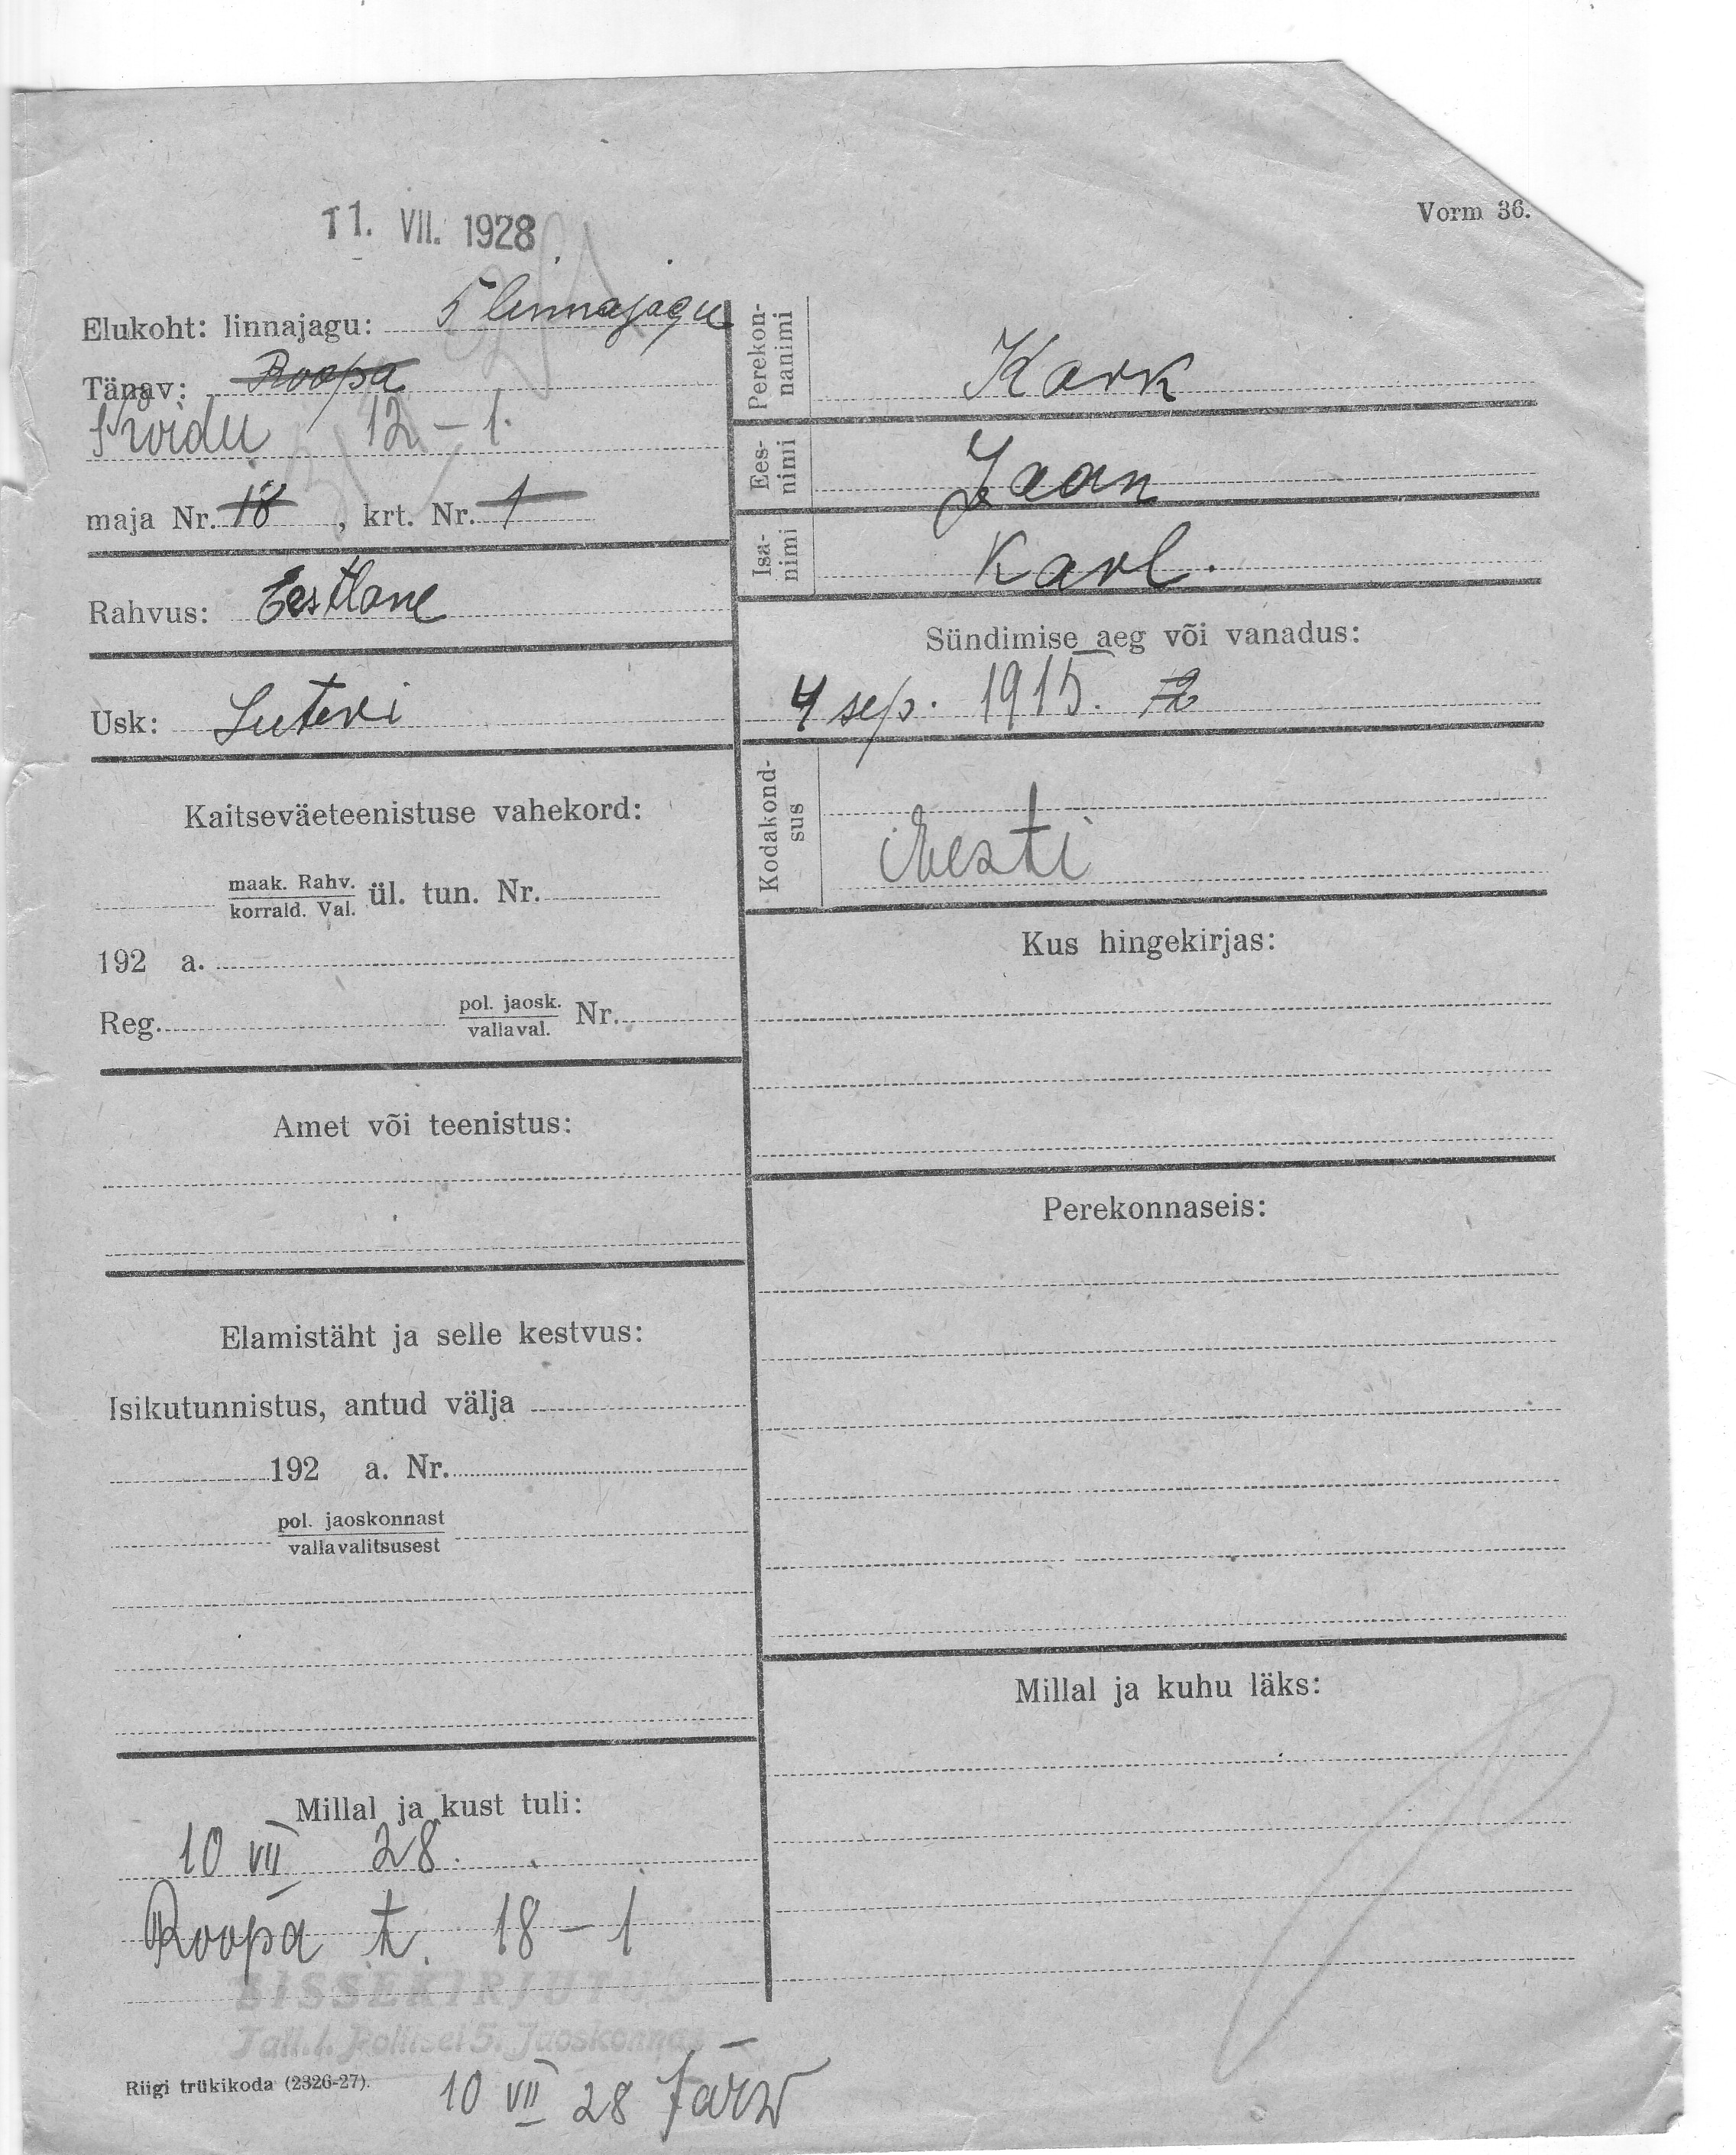 11. VII. 1928
Vorm 36.
Elukoht: linnajagu: 5 linnajagu
Tänav: Roopa
Kõidu 12 – 1.
maja Nr. 18, krt. Nr. 1
Rahvus: Eestlane
Usk: Luteri
Kaitseväeteenistuse vahekord:
maak. Rahv.
korrald. Val. ül. tun. Nr.
192 a.
Reg. pol. jaosk.
vallaval. Nr.
Amet või teenistus:
Elamistäht ja selle kestvus:
Isikutunnistus, antud välja
192 a. Nr.
pol. jaoskonnast
vallavalitsusest
Millal ja kust tuli:
10 VII 28.
Roopa t. 18 – 1
SISSEKIRJUTUD
Tall. l. Politsei 5. Jaoskonnas
Riigi trükikoda (2326-27).
10 VII 28 Järw
Perekon-
nanimi
Kark
Ees-
nimi
Jaan
Isa-
nimi
Karl.
Sündimise aeg või vanadus:
4 sep. 1915.
Kodakond-
sus
Eesti
Kus hingekirjas:
Perekonnaseis:
Millal ja kuhu läks: